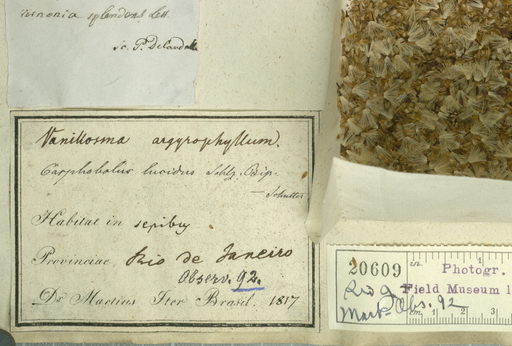 splendens Less
sc. P. DeCandolle
Vanillosma argyrophyllum.
Carphobolus lucidus Schlz. Bip.
— Schulter
Habitat in sepibus
Provinciae Rio de Janeiro
Observ. 92.
Dr. Martius Iter Brasil. 1817
20609
Photogr.
Field Museum
Mart. Obs. 92
in
cm 1 2 3